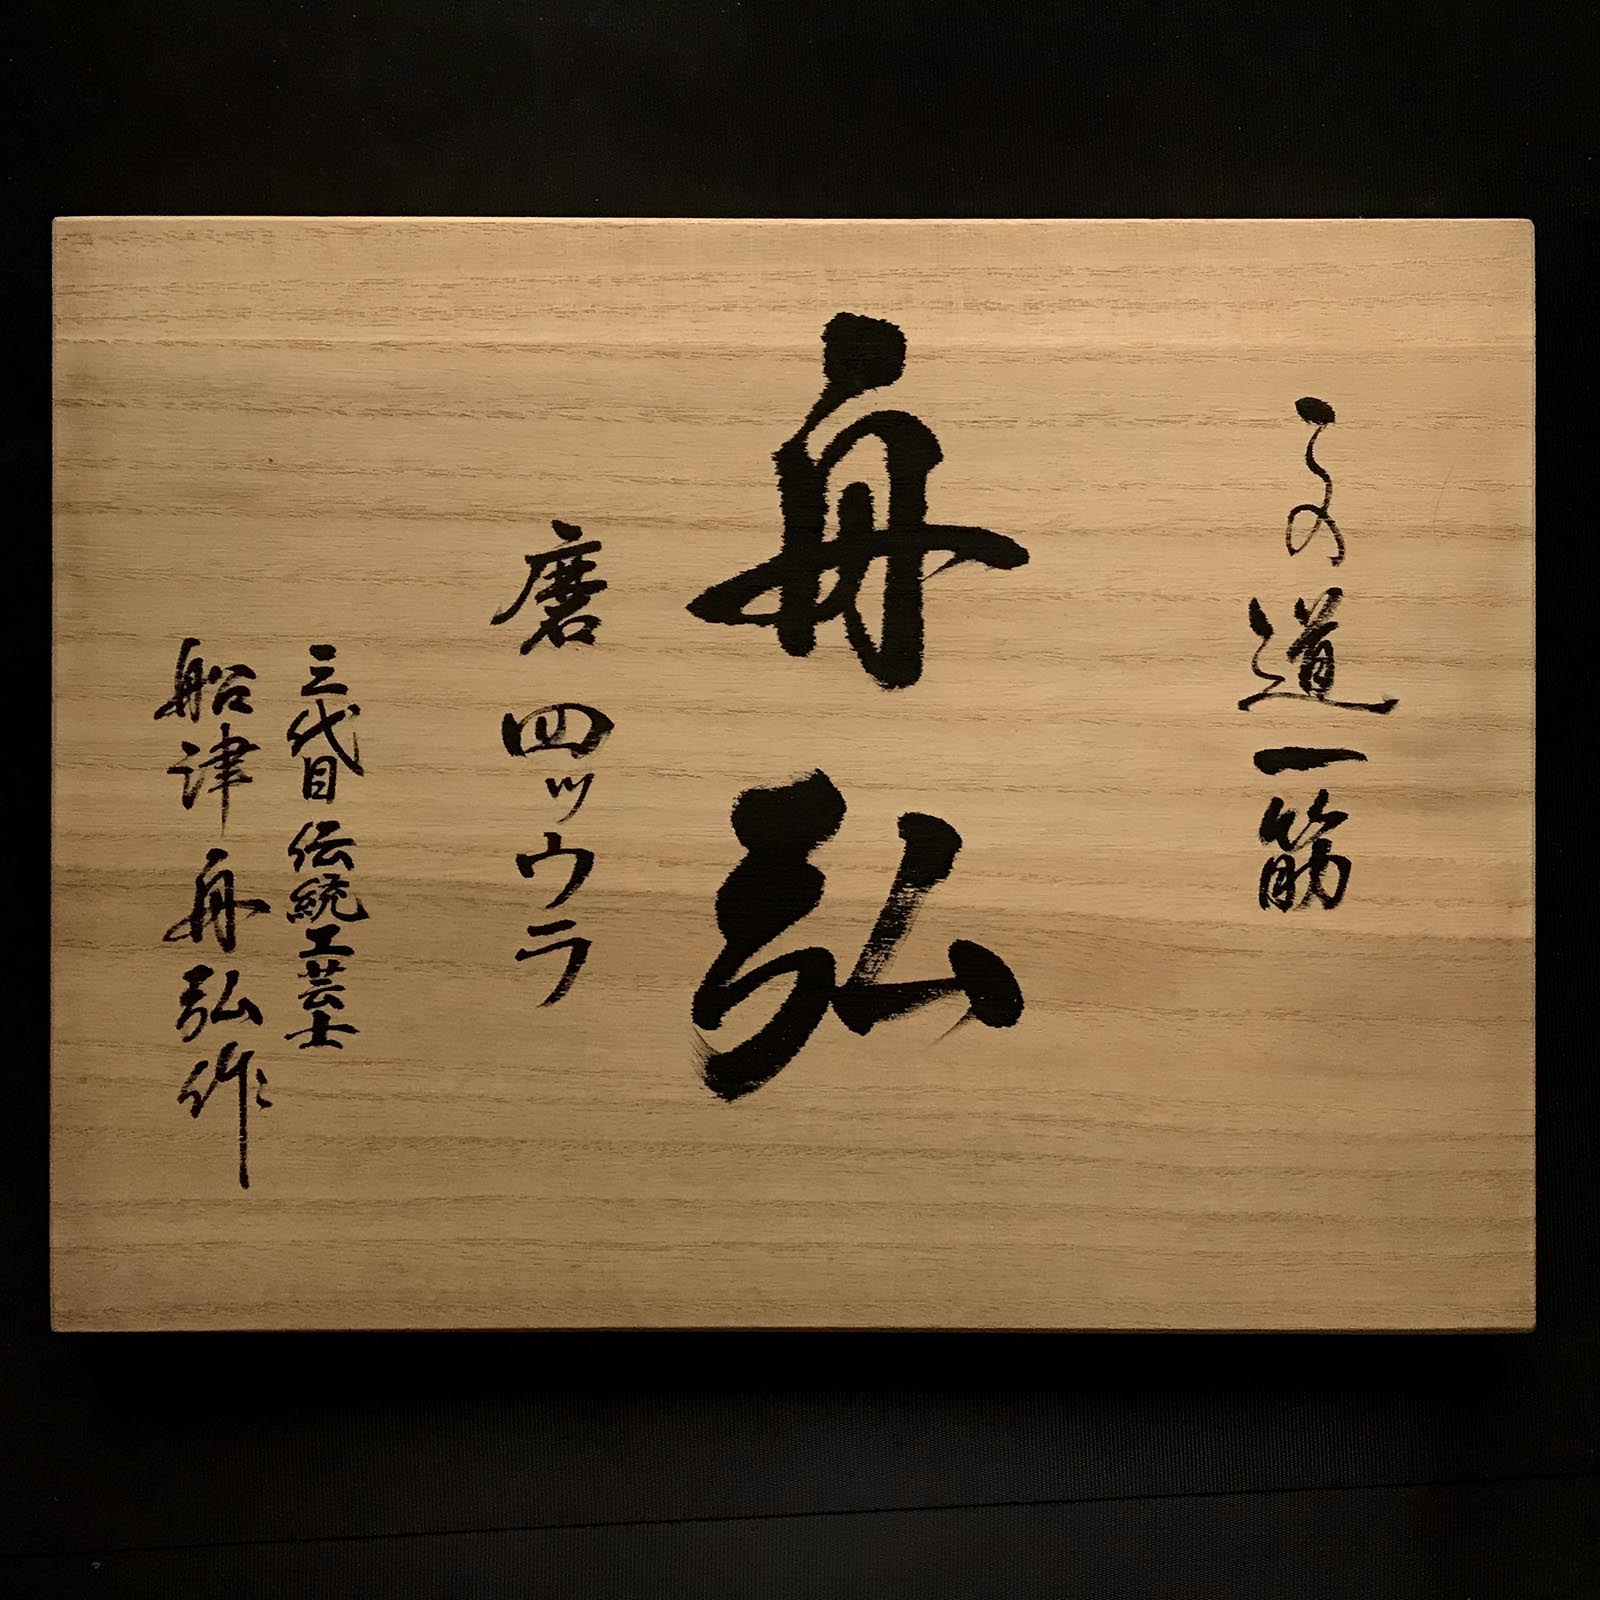 この道一筋
舟弘
磨 四ッウラ
三代目 伝統工芸士
船津舟弘作